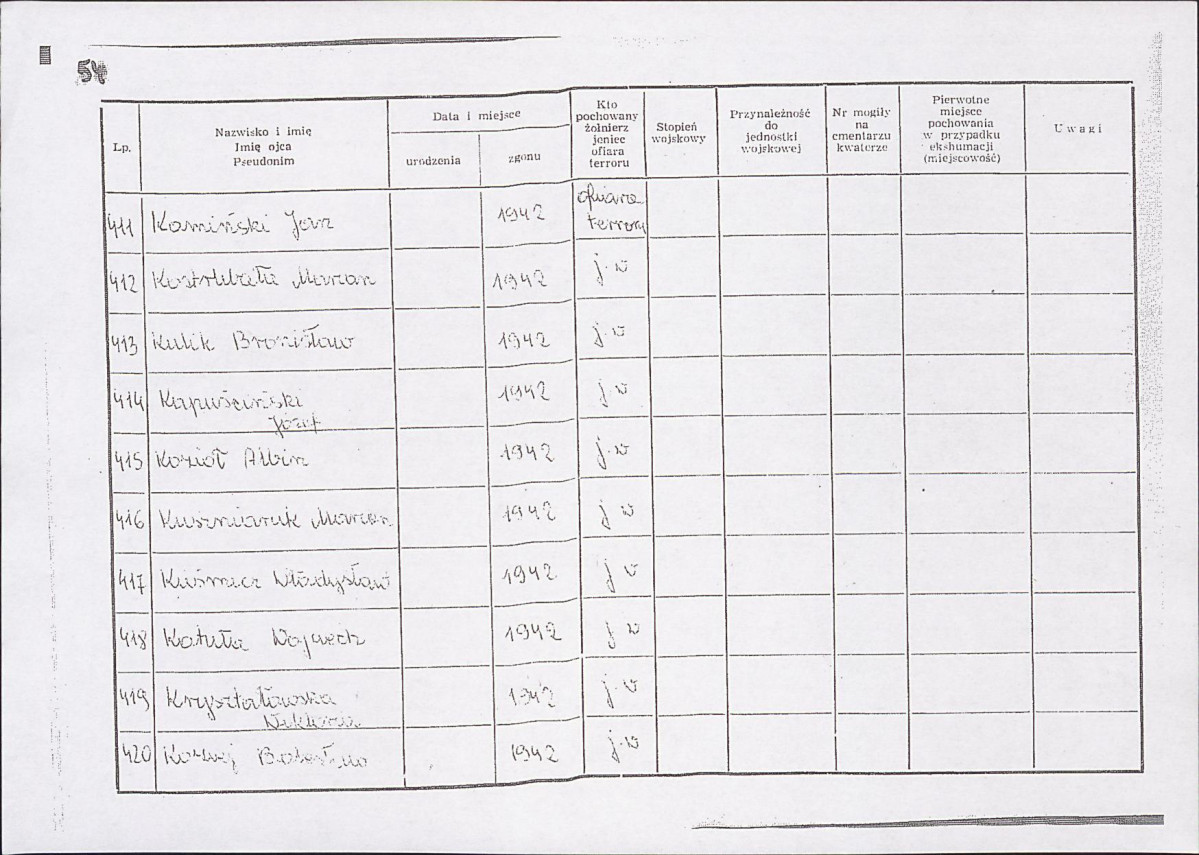 54
Lp.
Nazwisko i imię
Imię ojca
Pseudonim
Data i miejsce
urodzenia
zgonu
Kto
pochowany
żołnierz
jeniec
ofiara
terroru
Stopień
wojskowy
Przynależność
do
jednostki
wojskowej
Nr mogiły
na
cmentarzu
kwaterze
Pierwotne
miejsce
pochowania
w przypadku
ekshumacji
(miejscowość)
Uwagi
411 Kamiński Jan 1942 ofiara
terroru
412 Marian 1942 j.w
413 Kulik Bronisław 1942 j.w
414 Kapuściński 1942 j.w
Józef
415 Kozioł Albin 1942 j.w
416 Kuszniaruk Marian 1942 j w
417 Kuśmicz Władysław 1942 j w
418 Katuła Wojciech 1942 j w
419 Kryształowska 1942 j.w
Wiktoria
420 Bolesław 1942 j.w